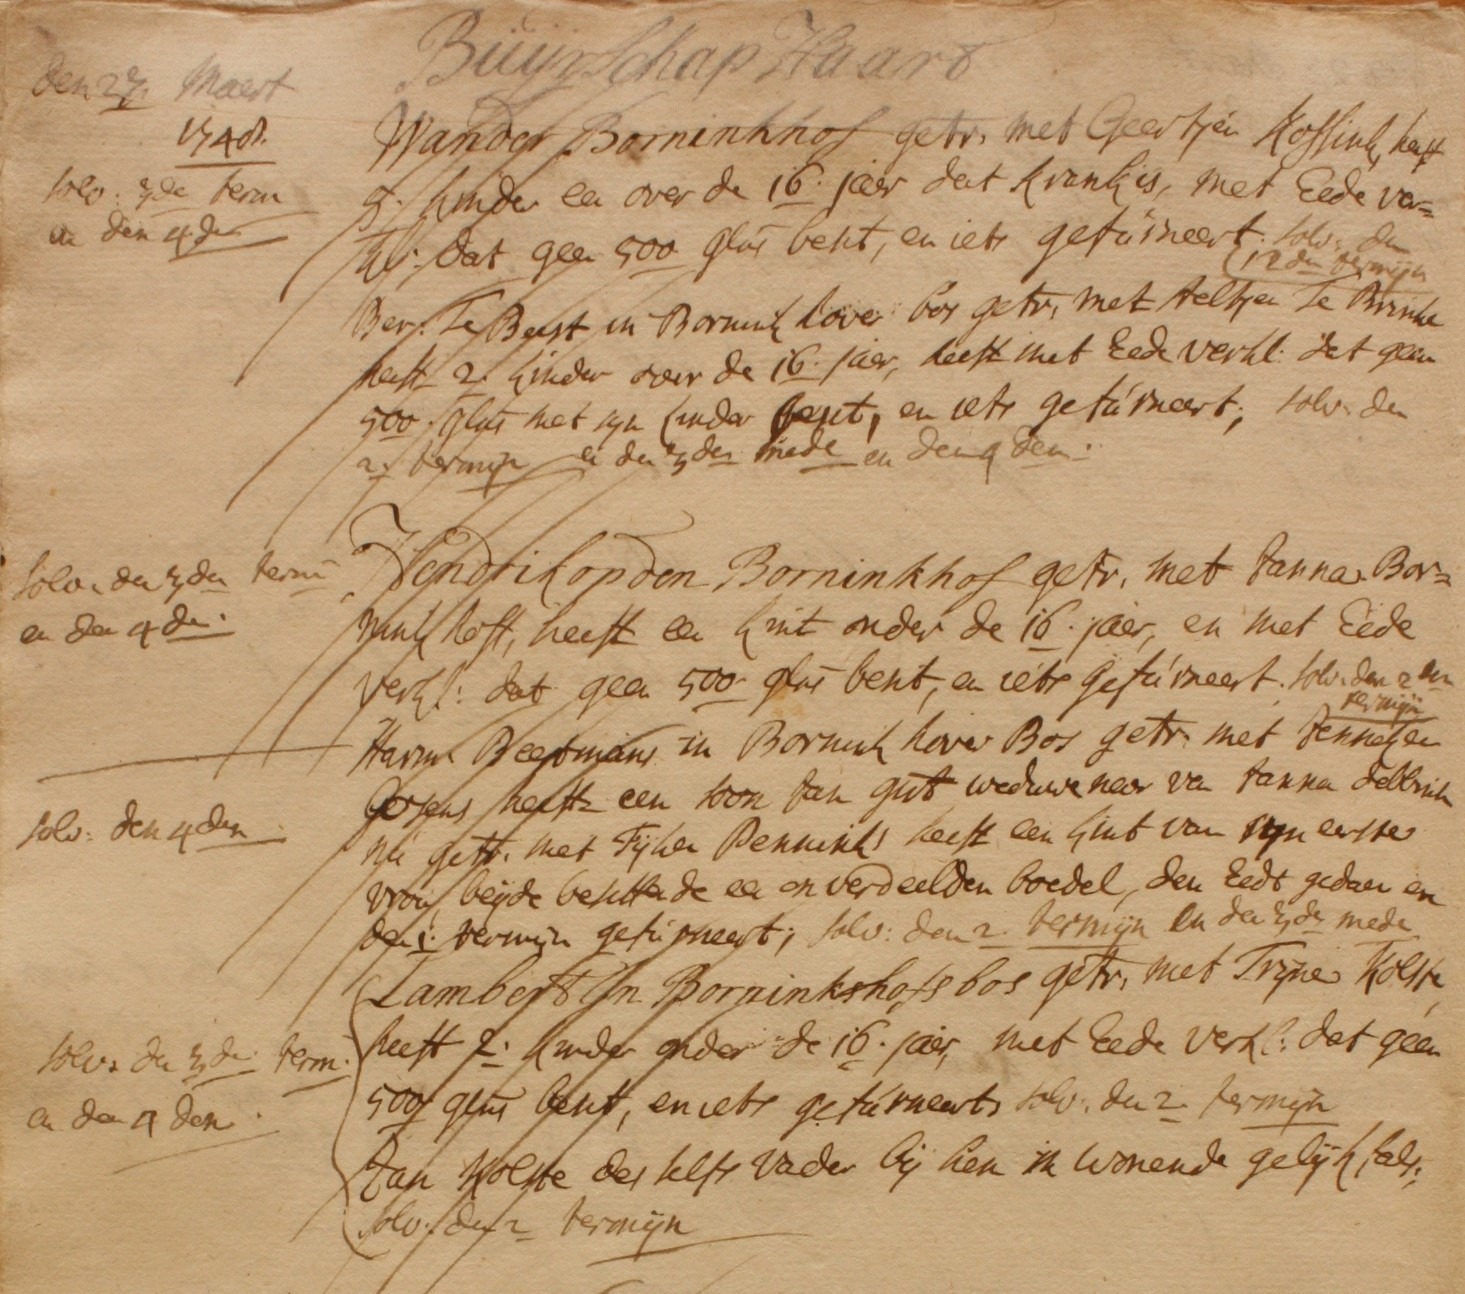 Buijrschap Haart
den 27. Maert
1748.
solv: 3de term
en den 4den
Wander Borninkhof getr. met Geertjen Kossink, heeft
kinder een over de 16. jaer dat krank is, met Eede ver=
kl: dat geen 500 glns besit, en iets gefúrneert. solv: den
2den termijn
Ber: Te Beest in Bornink hover bos getr, met Aeltjen Te Brinke
heeft 2. kinder over de 16. jaer, heeft met Eede verkl: dat geen
500. glns met syn kinder besit, en iets gefúrneert; solv. den
2. termijn en den 3den mede en den 4den.
solv. den 3den term
en den 4den.
Hendrik op den Borninkhof getr. met Janna Bor=
nink hoff, heeft een kint onder de 16. jaer, en met Eede
verkl: dat geen 500 glns besit, en iets gefúrneert. solv. den 2den
termijn
Harm Beestmans in Bornink hover Bos getr. met Jennetjen
solv: den 4den
Gosens heeft een soon Jan getr weduwenaer van Janna
nú getr. met Fijken Penninks heeft een kint van syn eerste
vrou, beijde besittende een onverdeelden boedel, den Eedt gedaen en
den 1. termijn gefúrneert; solv: den 2. termijn en den 3de mede
Lambert In Borninkshofs bos getr, met Trijne Kolste,
solv. den 3den term.
en den 4den.
heeft 2. kinder onder de 16. jaer, met Eede verkl: dat geen
500 glns besit, en iets gefúrneert solv. den 2 termijn
Jan Kolste des selfs vader bij hen in wonende gelijk fals,
solv. den 2 termijn